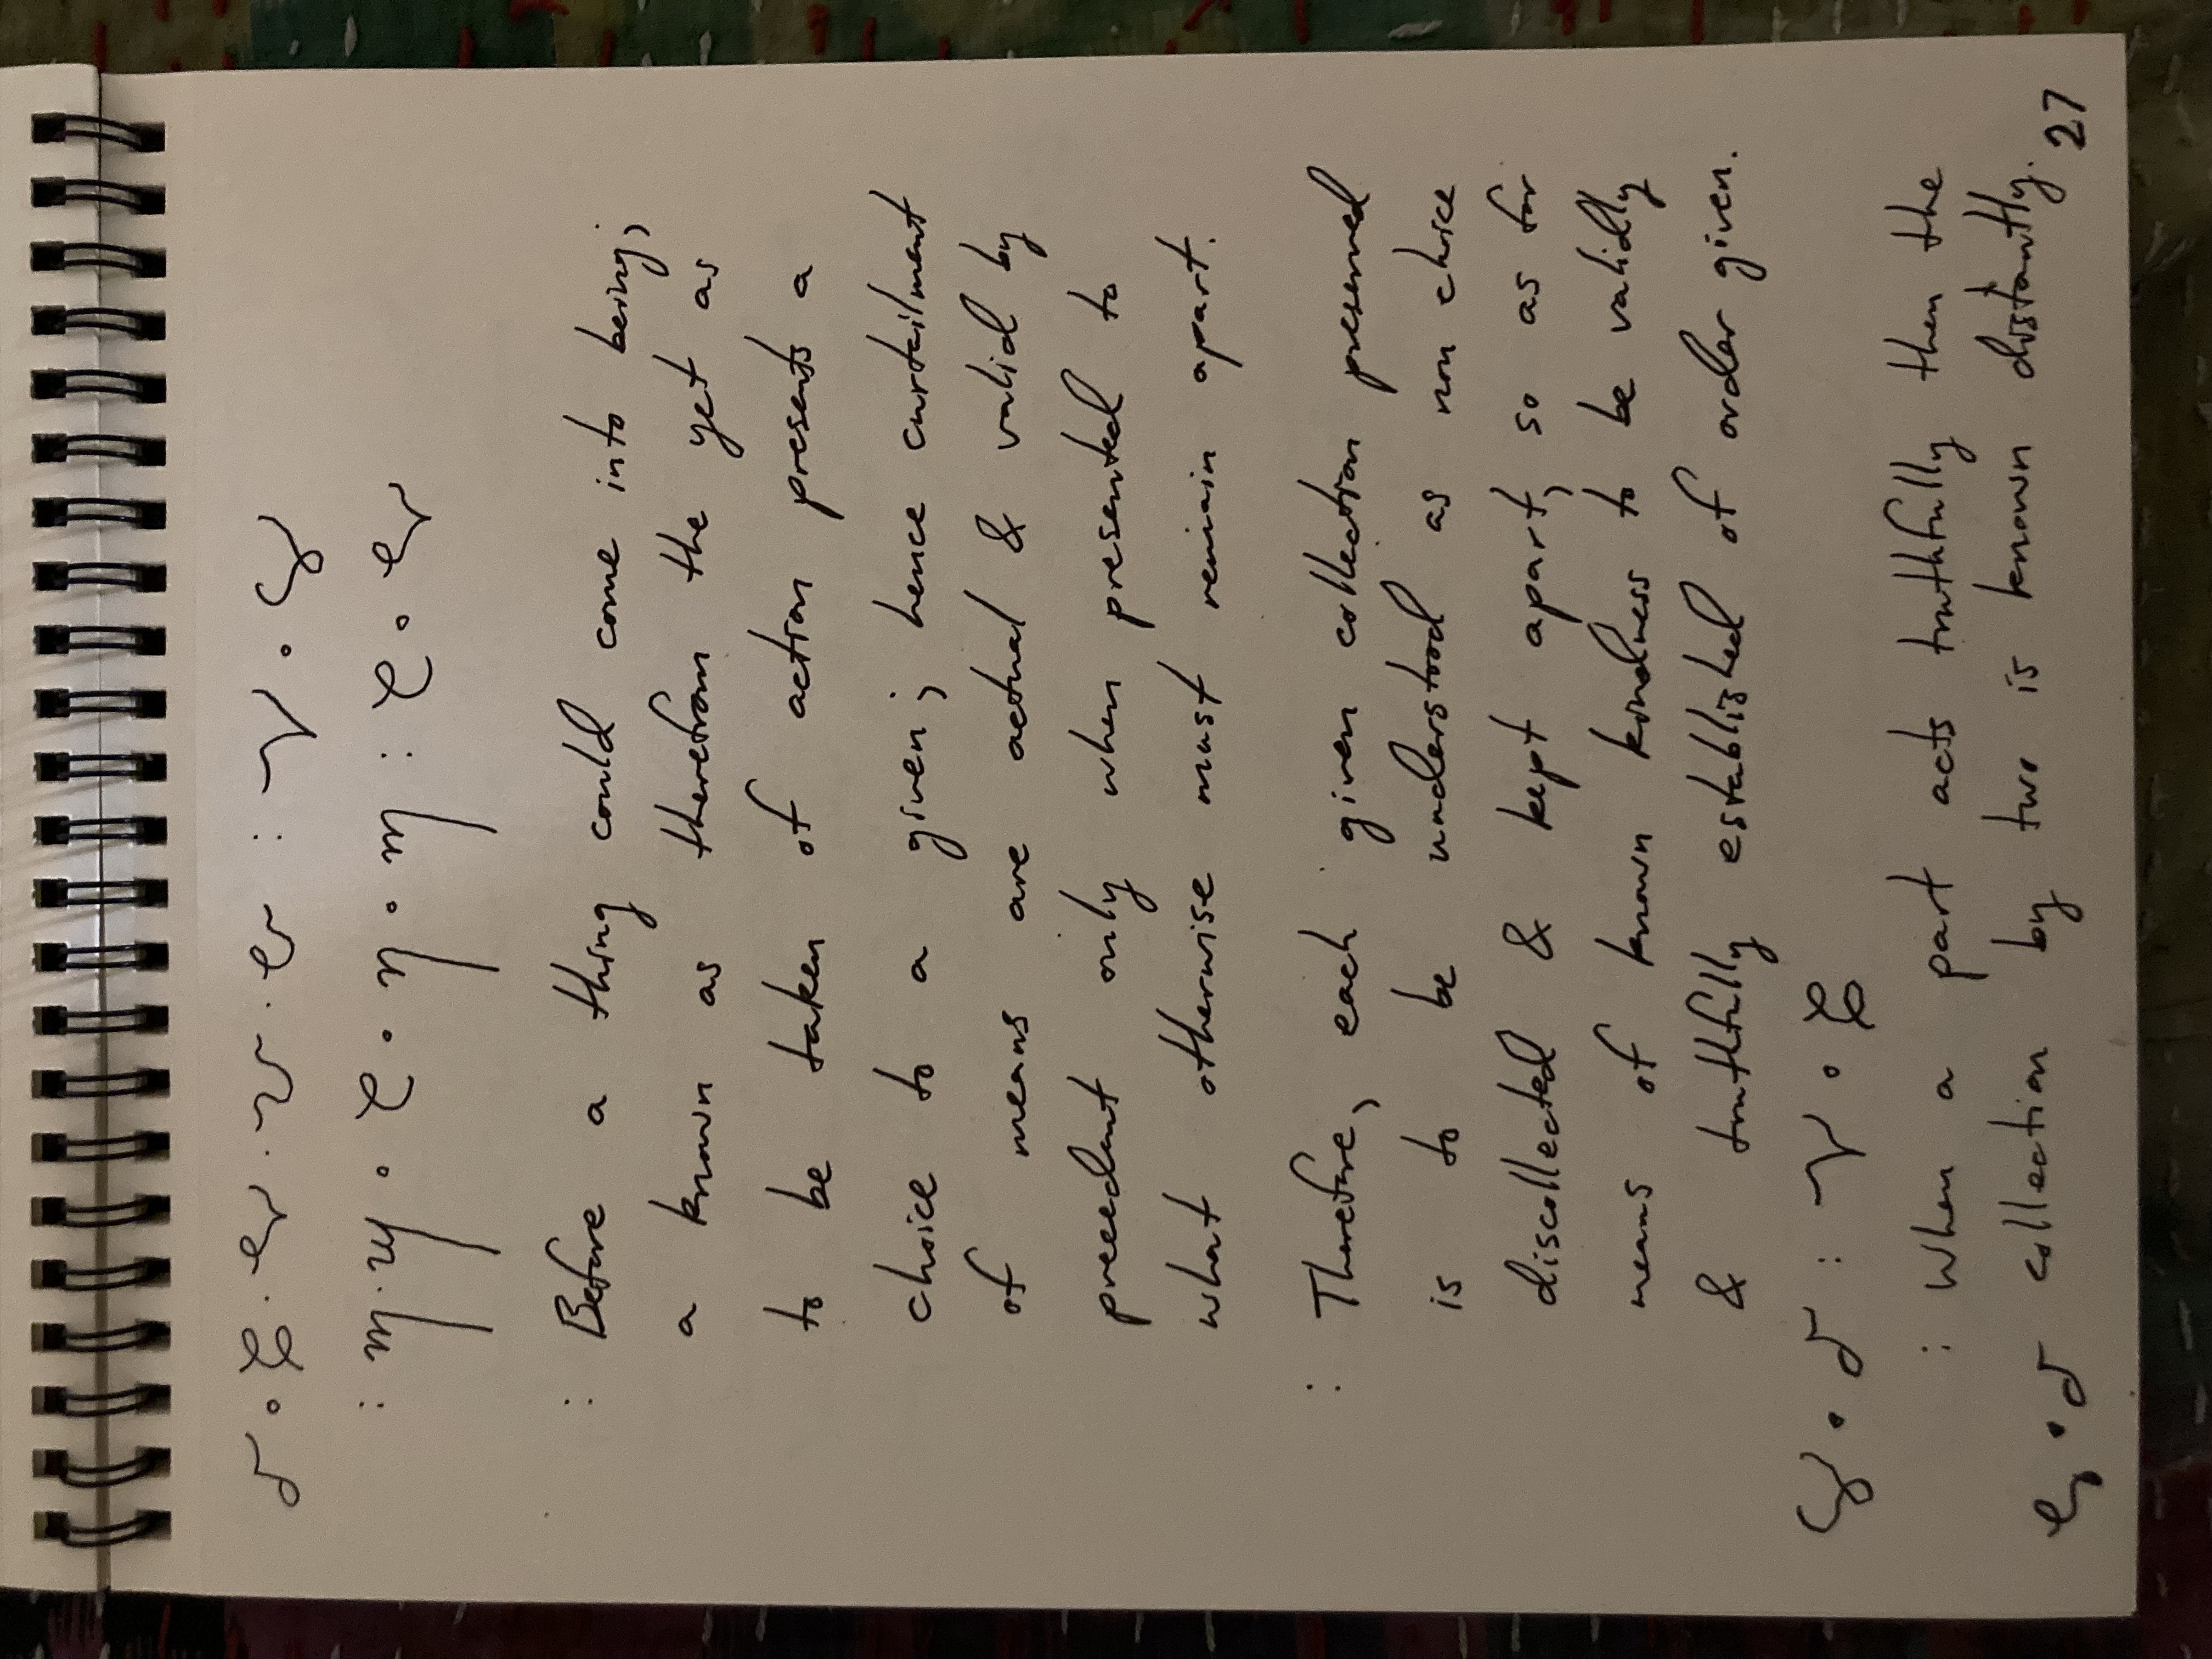 : Before a thing could come into being,
a known as therefrom the yet as
to be taken of action presents a
choice to a given; hence curtailment
of means are actual & valid by
precedent only when presented to
what otherwise must remain apart.
: Therefore, each given collection presened
is to be understood as non choice
discollected & kept apart, so as for
means of known kindness to be validly
& truthfully established of order given.
: When a part acts truthfully then the
collection by two is known distantly.
27